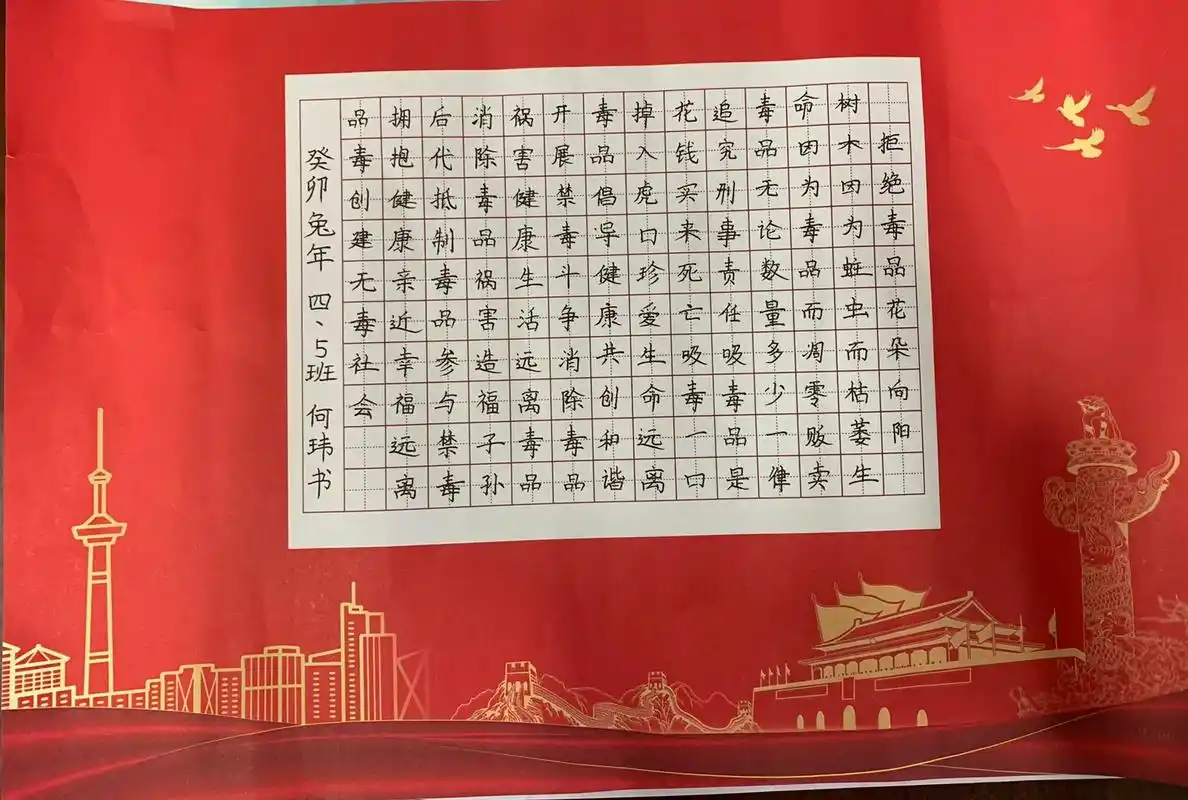 拒绝毒品花朵向阳
树木因为蛀虫而枯萎生
命因为毒品而凋零贩卖
毒品无论数量多少一律
追究刑事责任吸毒品是
花钱买来死亡吸毒一口
掉入虎口珍爱生命远离
毒品倡导健康共创和谐
开展禁毒斗争消除毒品
祸害健康生活远离毒品
消除毒品祸害造福子孙
后代抵制毒品参与禁毒
拥抱健康亲近幸福远离
品毒创建无毒社会
癸卯兔年 四、5班 何玮书